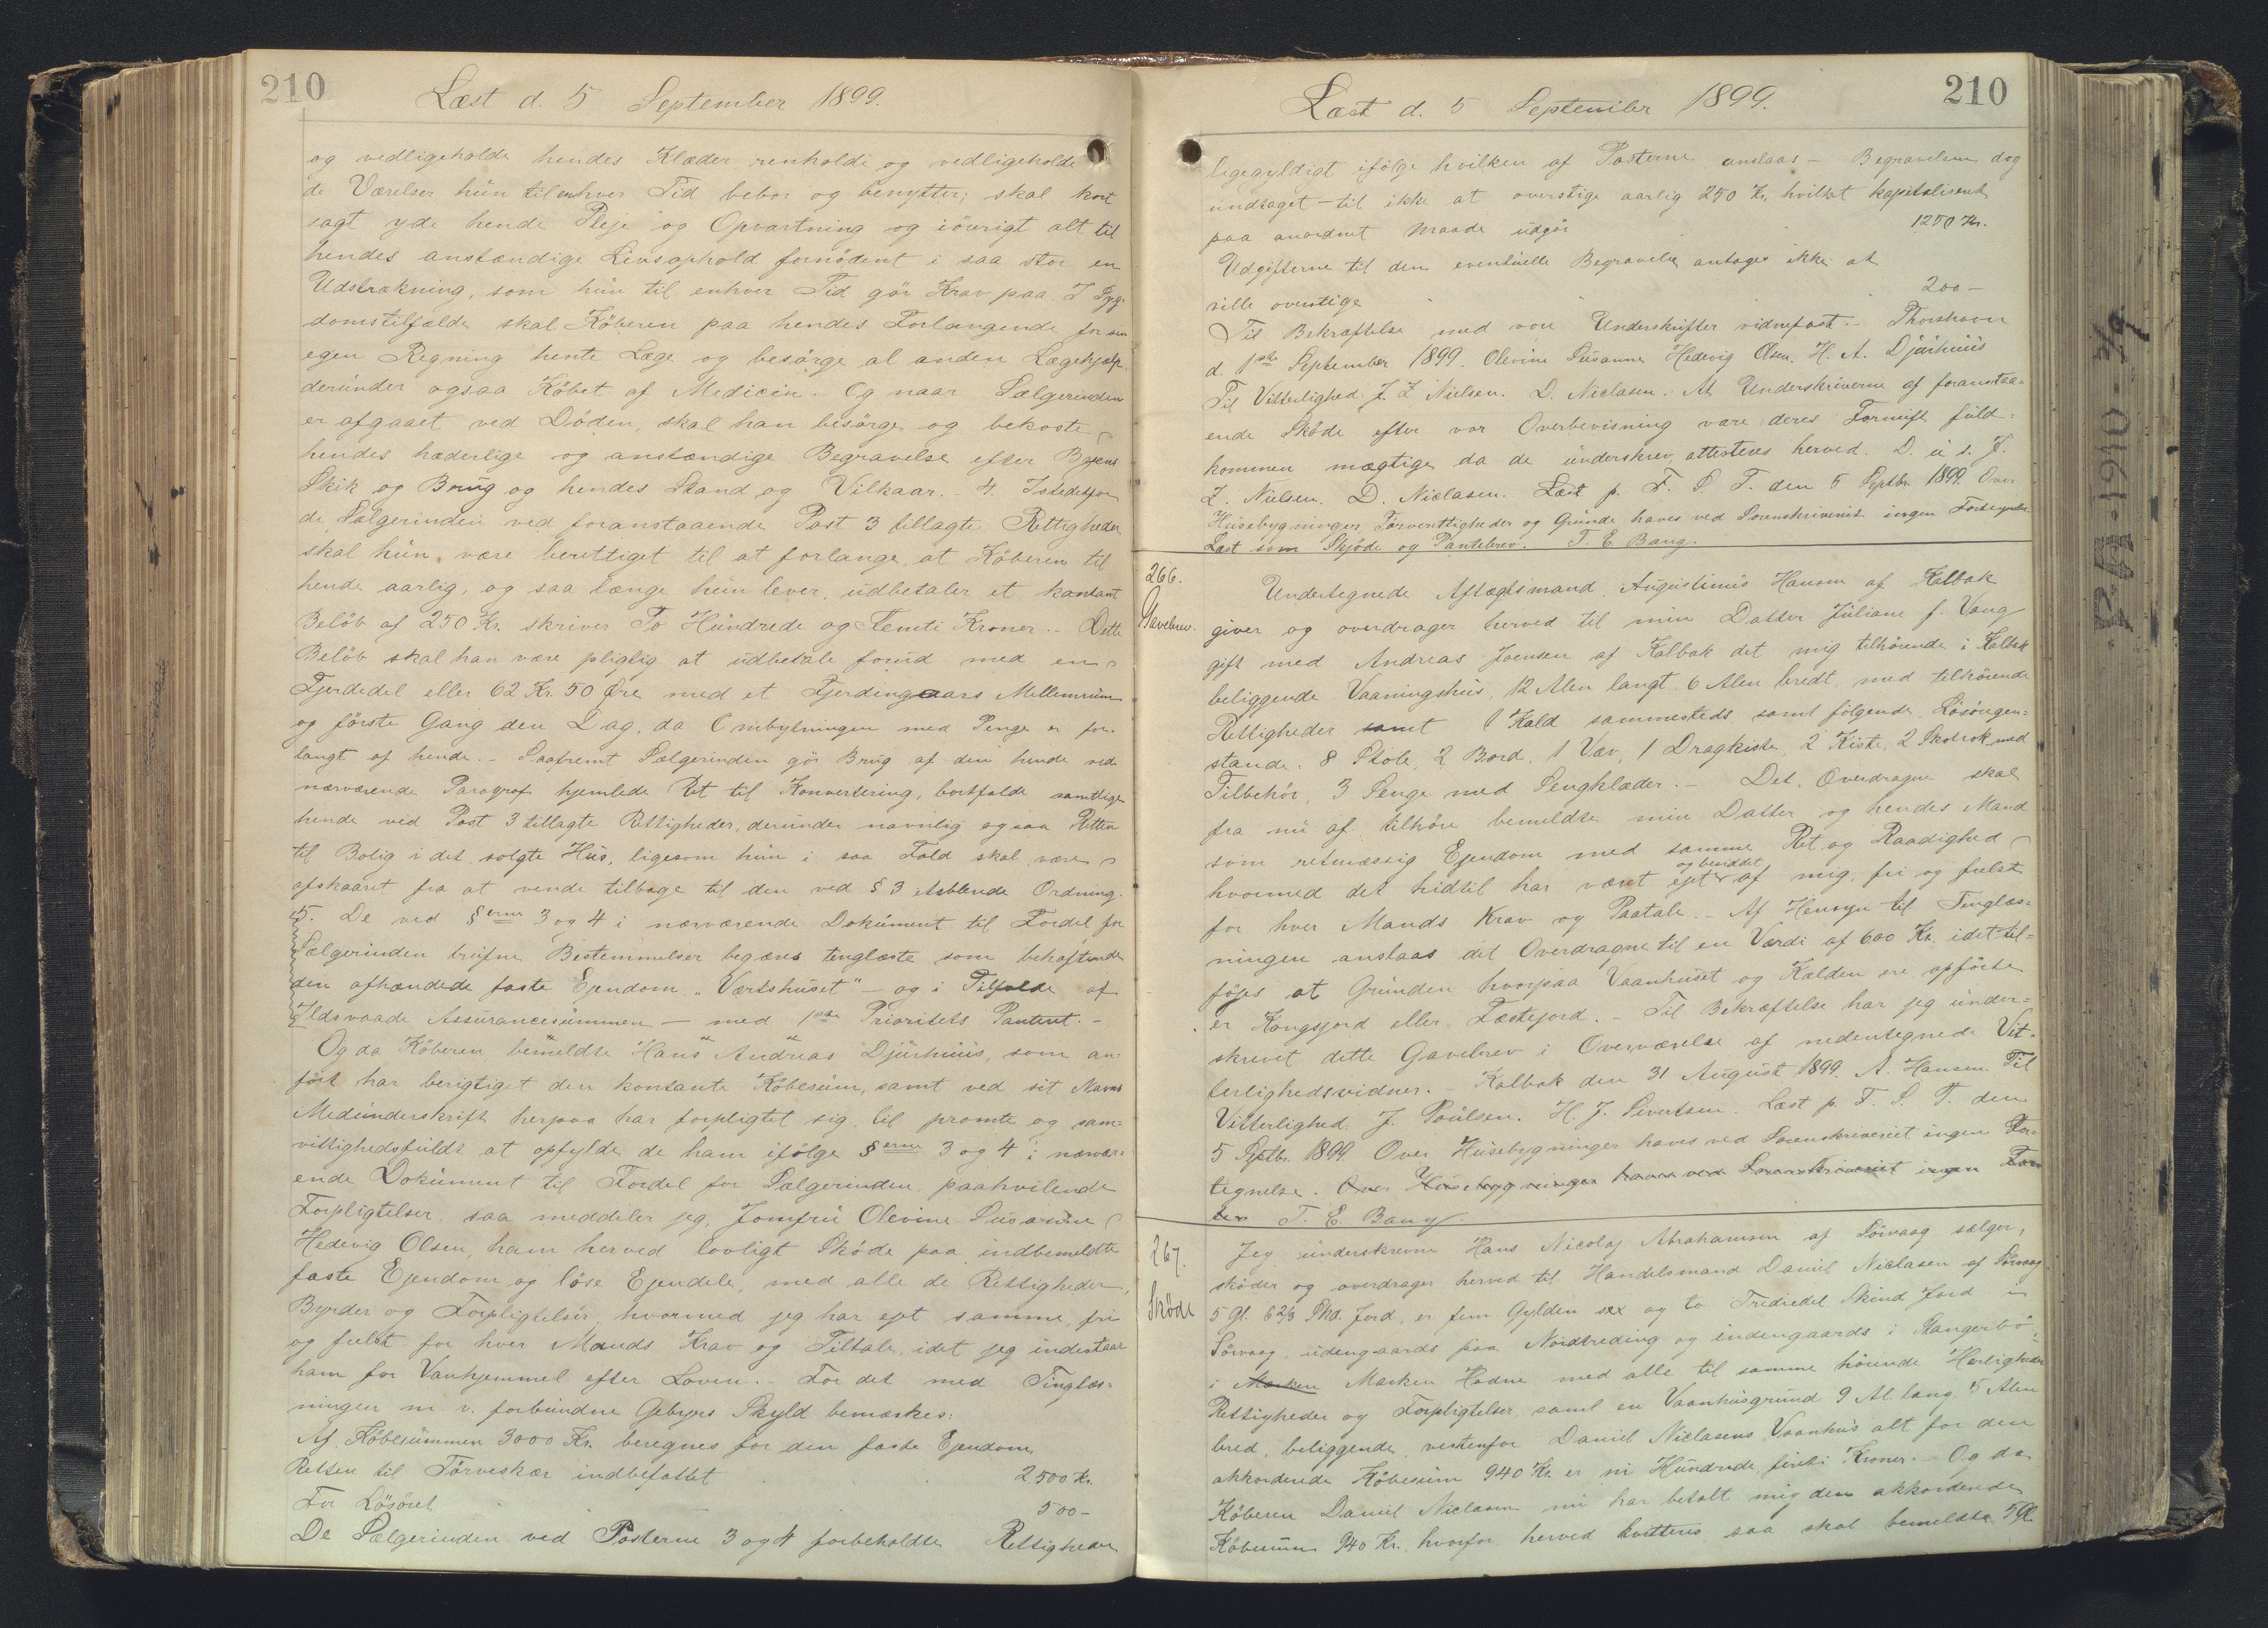 210
Læst d. 5 September 1899.
og vedligeholde hendes Klæder, renholde og vedligeholde
de Værelser hun til enhver Tid bebor og benytter; skal kort
sagt yde hende Pleje og Opvartning og iövrigt alt til
hendes anstændige Livsophold fornödent i saa stor en
Udstrækning, som hun til enhver Tid gör Krav paa. I Syg-
domstilfælde skal Köberen paa hendes Forlangende for sin
egen Regning hente Læge og besörge al anden Lægehjælp,
derunder ogsaa Köbet af Medicin. Og naar Sælgerinden
er afgaaet ved Döden, skal han besörge og bekoste
hendes hæderlige og anstændige Begravelse efter Byens
Skik og Brug og hendes Stand og Vilkaar. - 4. Istedetfor
de Sælgerinden ved foranstaaende Post 3 tillagte Rettigheder
skal hun være berettiget til at forlange, at Köberen til
hende aarlig, og saa længe hun lever, udbetaler et kontant
Belöb af 250 Kr. skriver To Hundrede og Femti Kroner. - Dette
Belöb skal han være pligtig at udbetale forud med en
Fjerdedel eller 62 Kr. 50 Øre med et Fjerdingaars Mellemrum
og förste Gang den Dag, da Ombytningen med Penge er for-
langt af hende. - Saafremt Sælgerinden gör Brug af den hende ved
nærværende Paragraf hjemlede Ret til Konvertering, bortfalde samtlige
hende ved Post 3 tillagte Rettigheder, derunder navnlig ogsaa Retten
til Bolig i det solgte Hus, ligesom hun i saa Fald skal være
afskaaret fra at vende tilbage til den ved § 3 etablerede Ordning.
5. De ved §erne 3 og 4 i nærværende Dokument til Fordel for
Sælgerinden trufne Bestemmelser begæres tinglæste som behæftende
den afhændede faste Ejendom "Værtshuset" - og i Tilfælde af
Ildsvaade Assurancesummen - med 1ste Prioritets Panteret. -
Og da Köberen bemeldte Hans Andreas Djurhuus, som an-
fört har berigtiget den kontante Köbesum, samt ved sit Navns
Medunderskrift herpaa har forpligtet sig til promte og sam-
vittighedsfuldt at opfylde de ham ifölge §erne 3 og 4 i nærvær-
ende Dokument til Fordel for Sælgerinden paahvilende
Forpligtelser, saa meddeler jeg, Jomfru Olevine Susanne
Hedevig Olsen, ham herved lovligt Sköde paa indbemeldte
faste Ejendom og löse Ejendele, med alle de Rettigheder,
Byrder og Forpligtelser, hvormed jeg har ejet samme, fri
og frelst for hver Mands Krav og Tiltale, idet jeg indestaar
ham for Vanhjemmel efter Loven. - For det med Tinglæs-
ningen m. v. forbundne Gebyrs Skyld bemærkes:
Af Köbesummen 3000 Kr. beregnes for den faste Ejendom,
Retten til Törveskær indbefattet 2500 Kr.
For Lösöret 500 -
De Sælgerinden ved Posterne 3 og 4 forbeholdte Rettigheder
210
Læst d. 5 September 1899.
ligegyldigt ifölge hvilken af Posterne anslaas - Begravelsen dog
undtaget - til ikke at overstige aarlig 250 Kr. hvilket kapitaliseret
paa anordnet Maade udgör 1250 Kr.
Udgifterne til den eventuelle Begravelse antages ikke at
ville overstige 200 -
Til Bekræftelse med vore Underskrifter vidnefast. - Thorshavn
d. 1ste September 1899. Olevine Susanne Hedevig Olsen. H. A. Djurhuus
Til Vitterlighed: J. Z. Nielsen. D. Niclasen. At Underskriverne af foranstaa-
ende Sköde efter vor Overbevisning vare deres Fornuft fuld-
kommen mægtige da de underskrev, attesteres herved. D. u. s. J.
Z. Nielsen. D. Niclasen. Læst p. F. S. T. den 5 Septbr. 1899. Over
Husebygninger, Törverettigheder og Grunde haves ved Sorenskriveriet ingen Fortegnelse.
Læst som Skjöde og Pantebrev. T. E. Bang.
266.
Gavebrev.
Undertegnede Aftægtsmand Augustinus Hansen af Kalbak
giver og overdrager herved til min Datter Juliane f. Vang
gift med Andreas Joensen af Kalbak det mig tilhörende i Kalbak
beliggende Vaaningshus, 12 Alen langt 6 Alen bredt, med tilhörende
Rettigheder samt 1 Kald sammesteds samt fölgende Lösöregen-
stande: 8 Stole, 2 Bord, 1 Væv, 1 Dragkiste, 2 Kiste, 2 Skotrok med
Tilbehör, 3 Senge med Sengklæder. - Det Overdragne skal
fra nu af tilhöre bemeldte min Datter og hendes Mand
som retmæssig Ejendom med samme Ret og Raadighed
hvormed det hidtil har været ejet og besiddet af mig, fri og frelst
for hver Mands Krav og Paatale. - Af Hensyn til Tinglæs-
ningen anslaas det Overdragne til en Værdi af 600 Kr. idet til-
föjes at Grunden hvorpaa Vaanhuset og Kalden ere opförte
er Kongsjord eller Fæstejord. - Til Bekræftelse har jeg under-
skrevet dette Gavebrev i Overværelse af nedentegnede Vit-
terlighedsvidner. - Kalbak den 31 August 1899. A. Hansen. Til
Vitterlighed: J. Poulsen. H. J. Sivertsen. Læst p. F. S. T. den
5 Septbr. 1899. Over Husebygninger haves ved Sorenskriveriet ingen For-
tegnelse. Over Husebygninger haves ved Sorenskriveriet ingen For
T. E. Bang.
267.
Sköde
Jeg underskrevne Hans Nicolaj Abrahamsen af Sörvaag sælger,
sköder og overdrager herved til Handelsmand Daniel Niclasen af Sörvaag
5 Gl. 6 2/3 Skd. Jord, er fem Gylden sex og to Trediedel Skind Jord i
Sörvaag, udengaards paa Nordtreding og indengaards i Stangerbö
i Marken Marken Hadne med alle til samme hörende Herligheder
Rettigheder og Forpligtelser, samt en Vaanhusgrund 9 Al. lang, 5 Alen
bred, beliggende vestenfor Daniel Niclasens Vaanhus alt for den
akkorderede Köbesum 940 Kr. er ni Hundrede firti Kroner. - Og da
Köberen Daniel Niclasen nu har betalt mig den akkorderede
Köbesum 940 Kr. hvorfor herved kvitteres saa skal bemeldte 5 Gl.